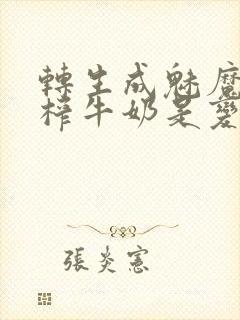 轉生成魅魔
榨牛奶是變
張炎憲